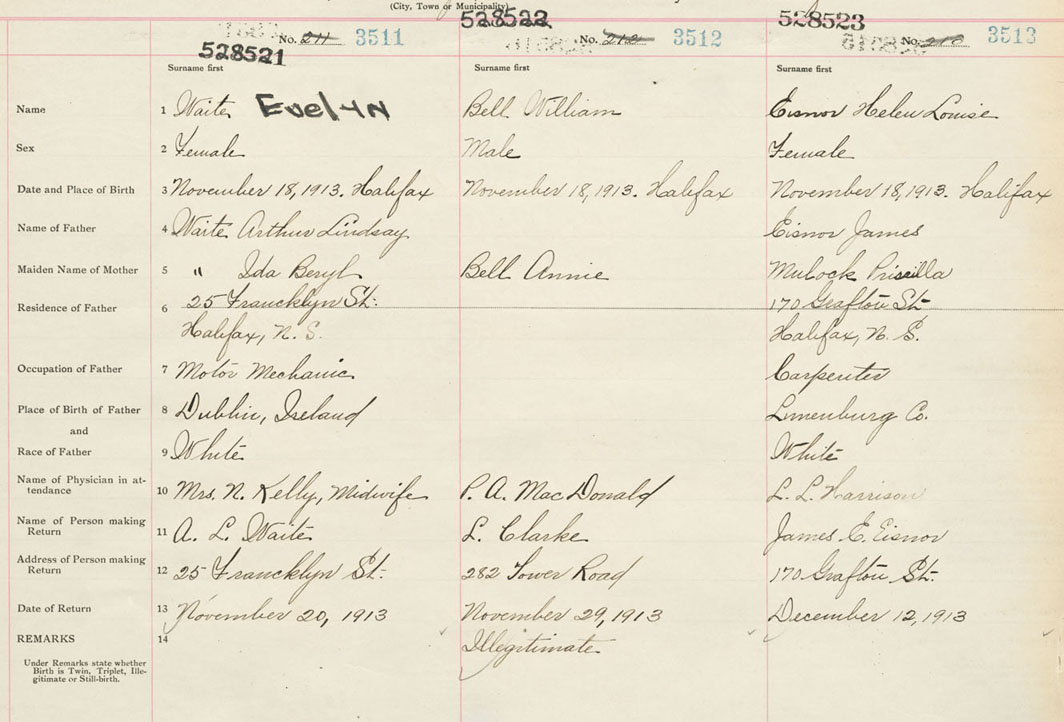 (City, Town or Municipality)
528521 528522 528523
No. 211 3511 No. 212 3512 No. 3513
Surname first Surname first Surname first
Name 1 Waite, Evelyn Bell William Eisnor Helen Louise
Sex 2 Female Male Female
Date and Place of Birth 3 November 18, 1913. Halifax November 18, 1913. Halifax November 18, 1913. Halifax
Name of Father 4 Waite Arthur Lindsay Eisnor James
Maiden Name of Mother 5 " Ida Beryl Bell Annie Mulock Priscilla
Residence of Father 6 25 Francklyn St: 170 Grafton St-
Halifax, N. S. Halifax, N. S.
Occupation of Father 7 Motor Mechanic Carpenter
Place of Birth of Father 8 Dublin, Ireland Lunenburg Co.
and
Race of Father 9 White White
Name of Physician in at-
tendance 10 Mrs. N. Kelly, Midwife P. A. MacDonald L. L. Harrison
Name of Person making
Return 11 A. L. Waite L. Clarke James E. Eisnor
Address of Person making
Return 12 25 Francklyn St. 282 Tower Road 170 Grafton St.
Date of Return 13 November 20, 1913 November 29, 1913 December 12, 1913
REMARKS 14 Illegitimate
Under Remarks state whether
Birth is Twin, Triplet, Ille-
gitimate or Still-birth.